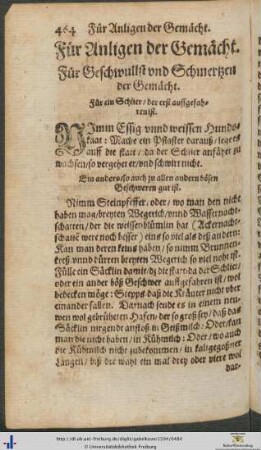 464 Für Anligen der Gemächt.
Für Anligen der Gemächt.
Für Geschwullst vnd Schmertzen
der Gemächt.
Für ein Schlier / der erst auffgefah-
ren ist.
NImm Essig vnnd weissen Hunds-
kaat: Mache ein Pflaster darauß / leg es
auff die statt / da der Schlier anfähet zu
wachsen / so vergehet er / vnd schwirt nicht.
Ein anders / so auch zu allen andern bösen
Geschweren gut ist.
Nimm Steinpfeffer: oder / wo man den nicht
haben mag / breyten Wegerich / vnnd Wassernacht-
schatten / der die weissen blümlin hat (Ackernacht-
schatt were noch besser) eins so viel als deß andern:
Kan man deren keins haben / so nimm Brunnen-
kreß vnnd dürren breyten Wegerich so viel noht ist.
Fülle ein Säcklin damit / dz die statt da der Schlier /
oder ein ander böß Geschwer auffgefahren ist / wol
bedecken möge: Stepps daß die Kräuter nicht vber
einander fallen. Darnach seude es in einem neu-
wen wol gebrühten Hafen / der so groß sey / daß das
Säcklin nirgendt anstoß / in Geißmilch: Oder / kan
man die nicht haben / in Kühmilch: Oder / wo auch
die Kühmilch nicht zubekommen / in kaltgegoßner
Laugen / biß die waht ein mal drey oder viere wol
dar-
http://dl.ub.uni-freiburg.de/diglit/gabelkover1594/0484
© Universitätsbibliothek Freiburg